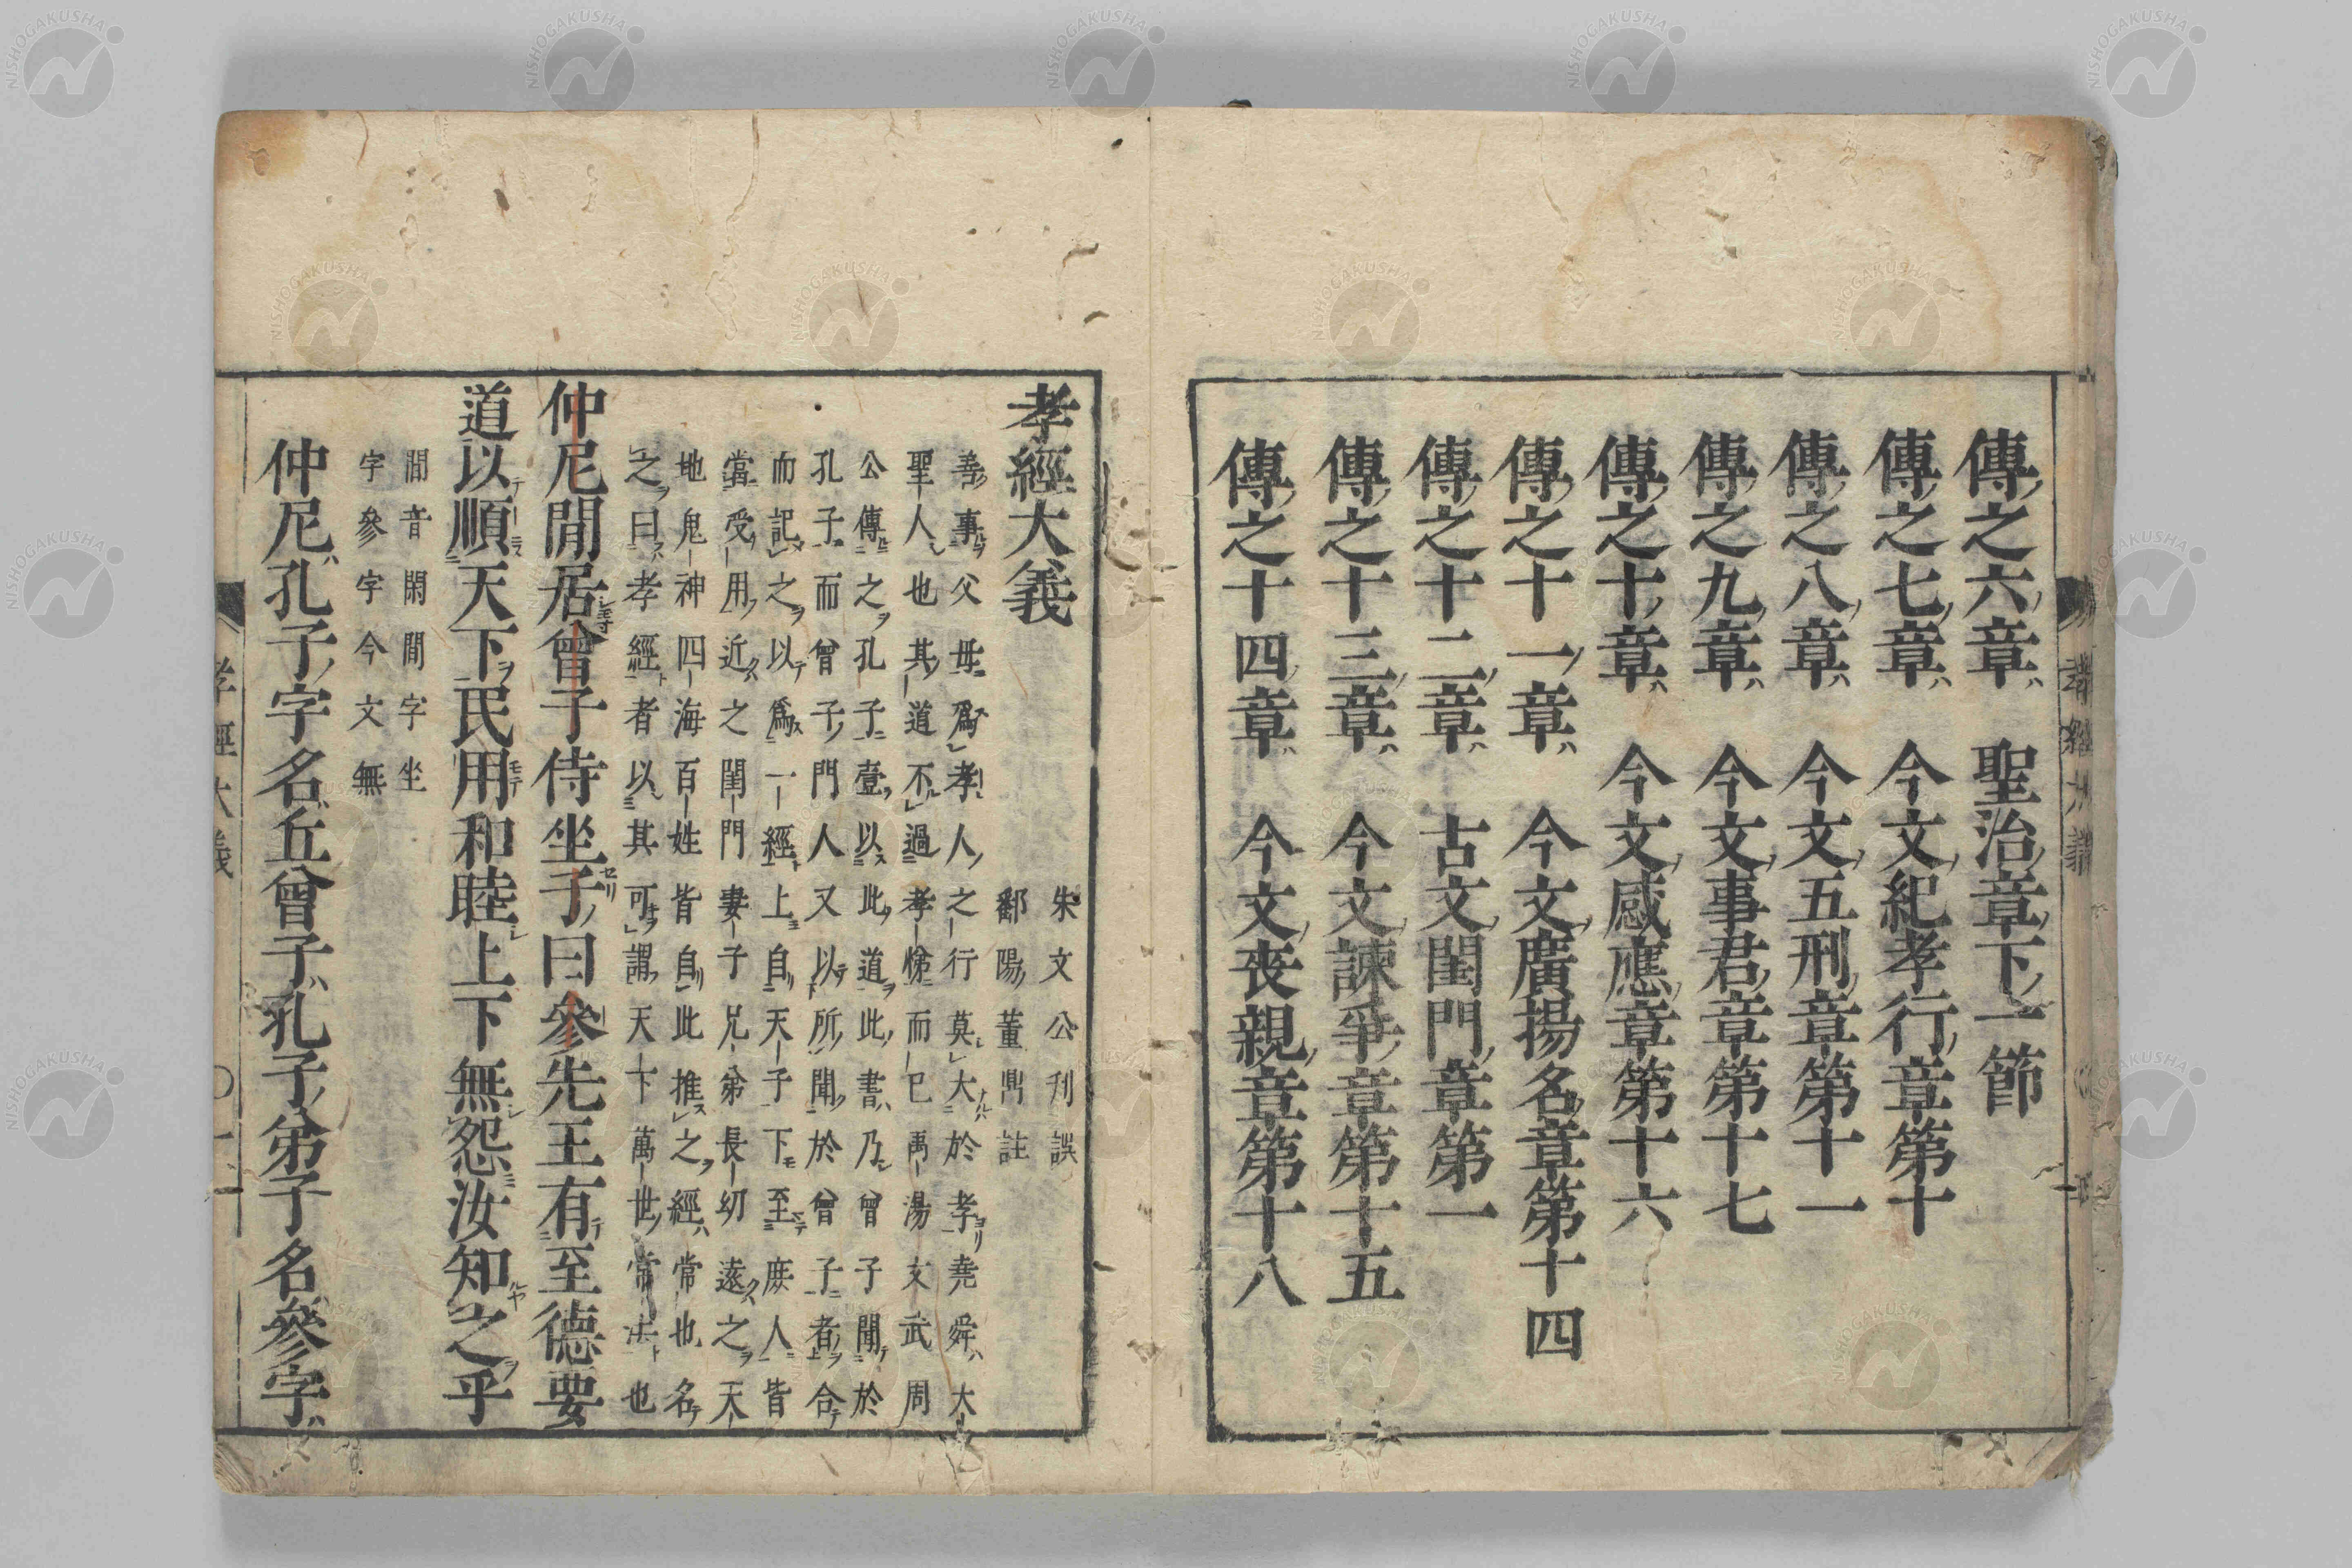 傳之六章 聖治章下一節
傳之七章 今文紀孝行章第十
傳之八章 今文五刑章第十一
傳之九章 今文事君章第十七
傳之十章 今文感應章第十六
傳之十一章 今文廣揚名章第十四
傳之十二章 古文閨門章第一
傳之十三章 今文諫爭章第十五
傳之十四章 今文喪親章第十八
孝經大義
朱文公刊誤
鄱陽董鼎註
善事父母爲孝人之行莫大於孝堯舜大
聖人也其道不過孝悌而已禹湯文武周
公傳之孔子壹以此道此書乃曾子聞於
孔子而曾子門人又以所聞於曾子者合
而記之以爲一經上自天子下至庶人皆
當受用近之閨門妻子兄弟長幼遠之天
地鬼神四海百姓皆自此推之經常也名
之曰孝經者以其可謂天下萬世常法也
仲尼閒居曾子侍坐子曰參先王有至德要
道以順天下民用和睦上下無怨汝知之乎
閒音閑間字坐
字參字今文無
仲尼孔子字名丘曾子孔子弟子名參字
孝經大義 〇一
NISHOGAKUSHA